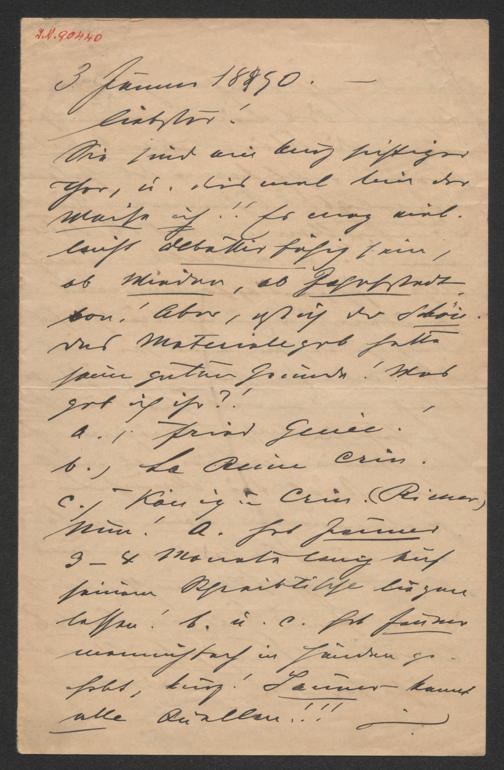 I.N. 90440
3 Jänner 1890. —
Liebster!
Sie sind ein kurzsichtiger
Thor, u. diesmal bin der
Weise ich!! Es mag viel-
leicht debattirfähig sein,
ob Wieden, ob Josefstadt
von! Aber, daß ich der
das Materiale gab hatte
seine guten Gründe! Was
gab ich ihr?!
a.) Fried Genée!
b.) La Reine Crin.
c.) Königin Crin. (Riemer)
Nun! A. hat Jauner
3–4 Monate lang auf
seinem Schreibtische liegen
lassen! b. u. c. hat Jauner
in Händen ge-
habt, kurz! Jauner kennt
alle Quellen!!!